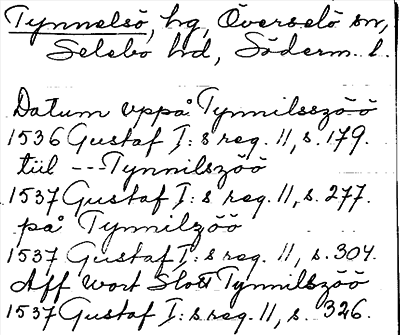 Tynnelsö, hg, Överselö sn,
Selebo hd, Söderm. l.
Datum uppå Tynnilsszöö
1536 Gustaf I:s reg. 11, s. 179.
tiil --- Tynnilszöö
1537 Gustaf I:s reg. 11, s. 277.
på Tynnilzöö
1537 Gustaf I:s reg. 11, s. 304.
Aff wort Slott Tynnilszöö
1537 Gustaf I:s reg. 11, s. 326.